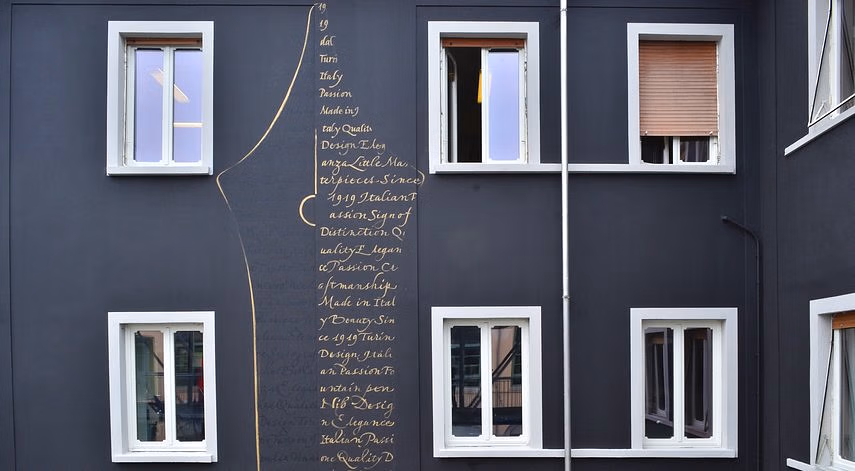 19
19
dal
Turi
Italy
Passion
Made in I
taly Qualit
Design Eleg
anza Little Ma
terpieces Since
1919 Italian P
assion Sign of
Distinction Q
uality Elegan
ce Passion Cr
aftmanship
Made in Ital
y Beauty Sin
ce 1919 Turin
Design Itali
an Passion Fo
untain pen
Nib Desig
n Elegance
Italian Passi
one Quality D